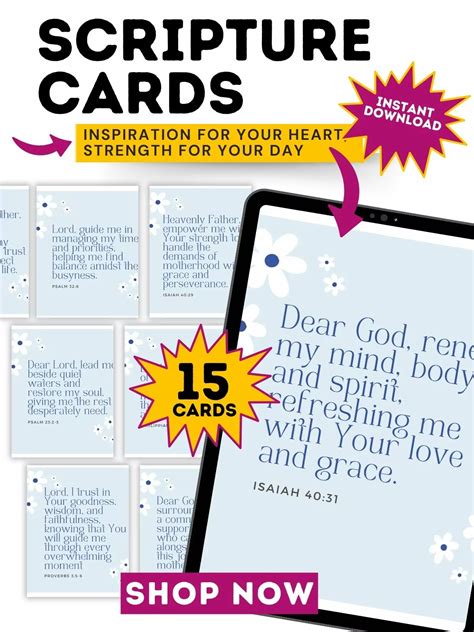 SCRIPTURE
CARDS
INSPIRATION FOR YOUR HEART,
STRENGTH FOR YOUR DAY
INSTANT
DOWNLOAD
trust
life.
Lord, guide me in
managing my time
and priorities,
helping me find
balance amidst the
busyness.
Heavenly Father,
empower me with
Your strength to
handle the
demands of
motherhood with
grace and
perseverance.
ISAIAH 40:29
Dear Lord, lead me
beside quiet
waters and
restore my soul,
giving me the rest
desperately need.
PSALM 23:2-3
15
CARDS
Lord, I trust in
Your goodness,
wisdom, and
faithfulness,
knowing that You
will guide me
through every
overwhelming
moment
PROVERBS 3:5-6
Dear Go
surrou
a comm
suppo
who ca
alongs
this jo
Dear God, rene
my mind, body
and spirit,
refreshing me
with Your love
and grace.
ISAIAH 40:31
SHOP NOW